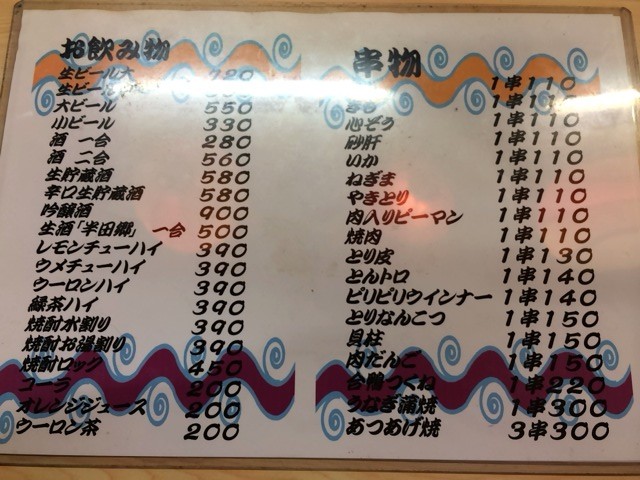 お飲み物
生ビール大 720
生ビール
大ビール 550
小ビール 330
酒 一合 280
酒 二合 560
生貯蔵酒 580
辛口生貯蔵酒 580
吟醸酒 900
生酒「半田郷」 一合 500
レモンチューハイ 390
ウメチューハイ 390
ウーロンハイ 390
緑茶ハイ 390
焼酎水割り 390
焼酎お湯割り 390
焼酎ロック 450
コーラ 200
オレンジジュース 200
ウーロン茶 200
串物
1串110
きも 1串110
心ぞう 1串110
砂肝 1串110
いか 1串110
ねぎま 1串110
やきとり 1串110
肉入りピーマン 1串110
焼肉 1串110
とり皮 1串130
とんトロ 1串140
ピリピリウインナー 1串140
とりなんこつ 1串150
貝柱 1串150
肉だんご 1串150
合鴨つくね 1串220
うなぎ蒲焼 1串300
あつあげ焼 3串300